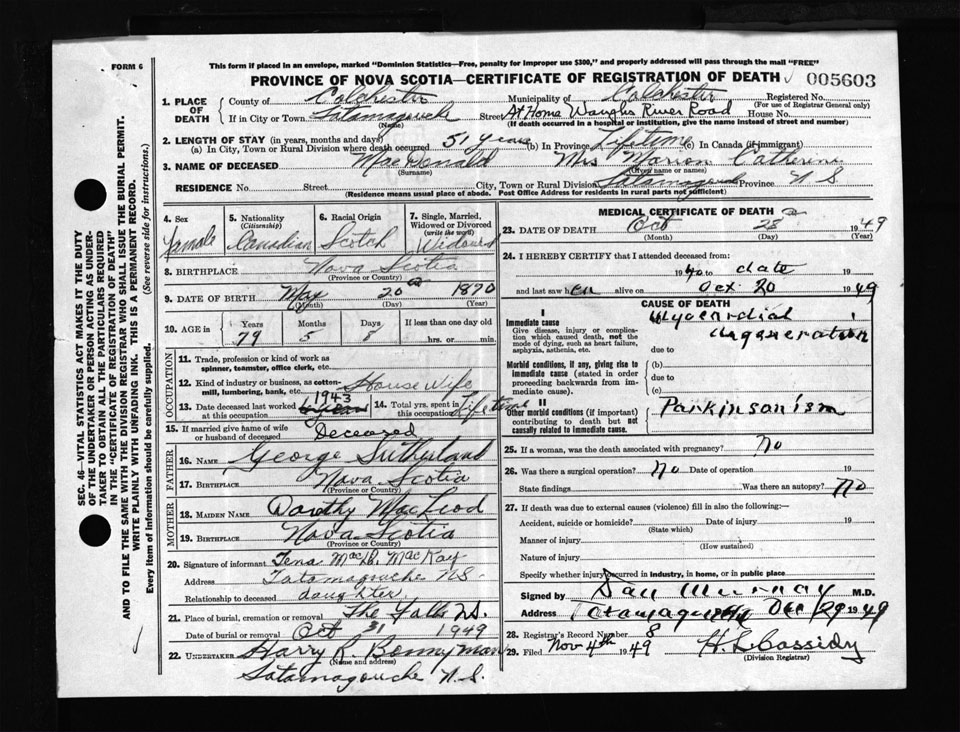 FORM 6
This form if placed in an envelope, marked "Dominion Statistics—Free, penalty for improper use $300," and properly addressed will pass through the mail "FREE"
PROVINCE OF NOVA SCOTIA—CERTIFICATE OF REGISTRATION OF DEATH 005603
1. PLACE OF DEATH County of Colchester Municipality of Colchester Registered No.
(For use of Registrar General only)
If in City or Town Tatamagouche Street At Home Waugh River Road House No.
(Name) (If death occurred in a hospital or institution, give the name instead of street and number)
2. LENGTH OF STAY (in years, months and days)
(a) In City, Town or Rural Division where death occurred 51 years (b) In Province Lifetime (c) In Canada (if immigrant)
3. NAME OF DECEASED MacDonald Mrs Marion Catherine
(Surname) (Given names or names)
RESIDENCE No. Street City, Town or Rural Division Tatamagouche Province N S
(Residence means usual place of abode. Post Office Address for residents in rural parts not sufficient)
4. Sex Female
5. Nationality (Citizenship) Canadian
6. Racial Origin Scotch
7. Single, Married, Widowed or Divorced (write the word) Widowed
8. BIRTHPLACE Nova Scotia
(Province or Country)
9. DATE OF BIRTH May 20 1870
(Month) (Day) (Year)
10. AGE in Years Months Days If less than one day old
79 5 8 hrs. or min.
OCCUPATION
11. Trade, profession or kind of work as spinner, teamster, office clerk, etc.
12. Kind of industry or business, as cotton-mill, lumbering, bank, etc. House Wife
13. Date deceased last worked at this occupation 1943
14. Total yrs. spent in this occupation Lifetime
15. If married give name of wife or husband of deceased Deceased
FATHER
16. NAME George Sutherland
17. BIRTHPLACE Nova Scotia
(Province or Country)
MOTHER
18. MAIDEN NAME Dorothy MacLeod
19. BIRTHPLACE Nova Scotia
(Province or Country)
20. Signature of informant Tena MacD. MacKay
Address Tatamagouche NS.
Relationship to deceased daughter
21. Place of burial, cremation or removal The Falls N.S.
Date of burial or removal Oct 31 1949
22. UNDERTAKER Harry R. Bonnyman
(Name and address)
Tatamagouche N.S.
MEDICAL CERTIFICATE OF DEATH
23. DATE OF DEATH Oct 28 1949
(Month) (Day) (Year)
24. I HEREBY CERTIFY that I attended deceased from:
1940 to date 19
and last saw her alive on Oct 20 1949
CAUSE OF DEATH
I
Immediate cause
Give disease, injury or complication which caused death, not the mode of dying, such as heart failure, asphyxia, asthenia, etc.
Myocardial degeneration
due to
Morbid conditions, if any, giving rise to immediate cause (stated in order proceeding backwards from immediate cause).
(b)
due to
(c)
II
Other morbid conditions (if important) contributing to death but not causally related to immediate cause.
Parkinsonism
25. If a woman, was the death associated with pregnancy? No
26. Was there a surgical operation? No Date of operation 19
State findings Was there an autopsy? No
27. If death was due to external causes (violence) fill in also the following:—
Accident, suicide or homicide? Date of injury 19
(State which)
Manner of injury
(How sustained)
Nature of injury
Specify whether injury occurred in industry, in home, or in public place
Signed by Dan Murray M.D.
Address Tatamagouche Oct 29 1949
28. Registrar's Record Number 8
29. Filed Nov 4th 1949 H. L. Cassidy
(Division Registrar)
SEC. 46 VITAL STATISTICS ACT MAKES IT THE DUTY
OF THE UNDERTAKER OR PERSON ACTING AS UNDER-
TAKER TO OBTAIN ALL THE PARTICULARS REQUIRED
IN THE "CERTIFICATE OF REGISTRATION OF DEATH"
AND TO FILE THE SAME WITH THE DIVISION REGISTRAR WHO SHALL ISSUE THE BURIAL PERMIT.
WRITE PLAINLY WITH UNFADING INK. THIS IS A PERMANENT RECORD.
Every item of information should be carefully supplied. (See reverse side for instructions.)